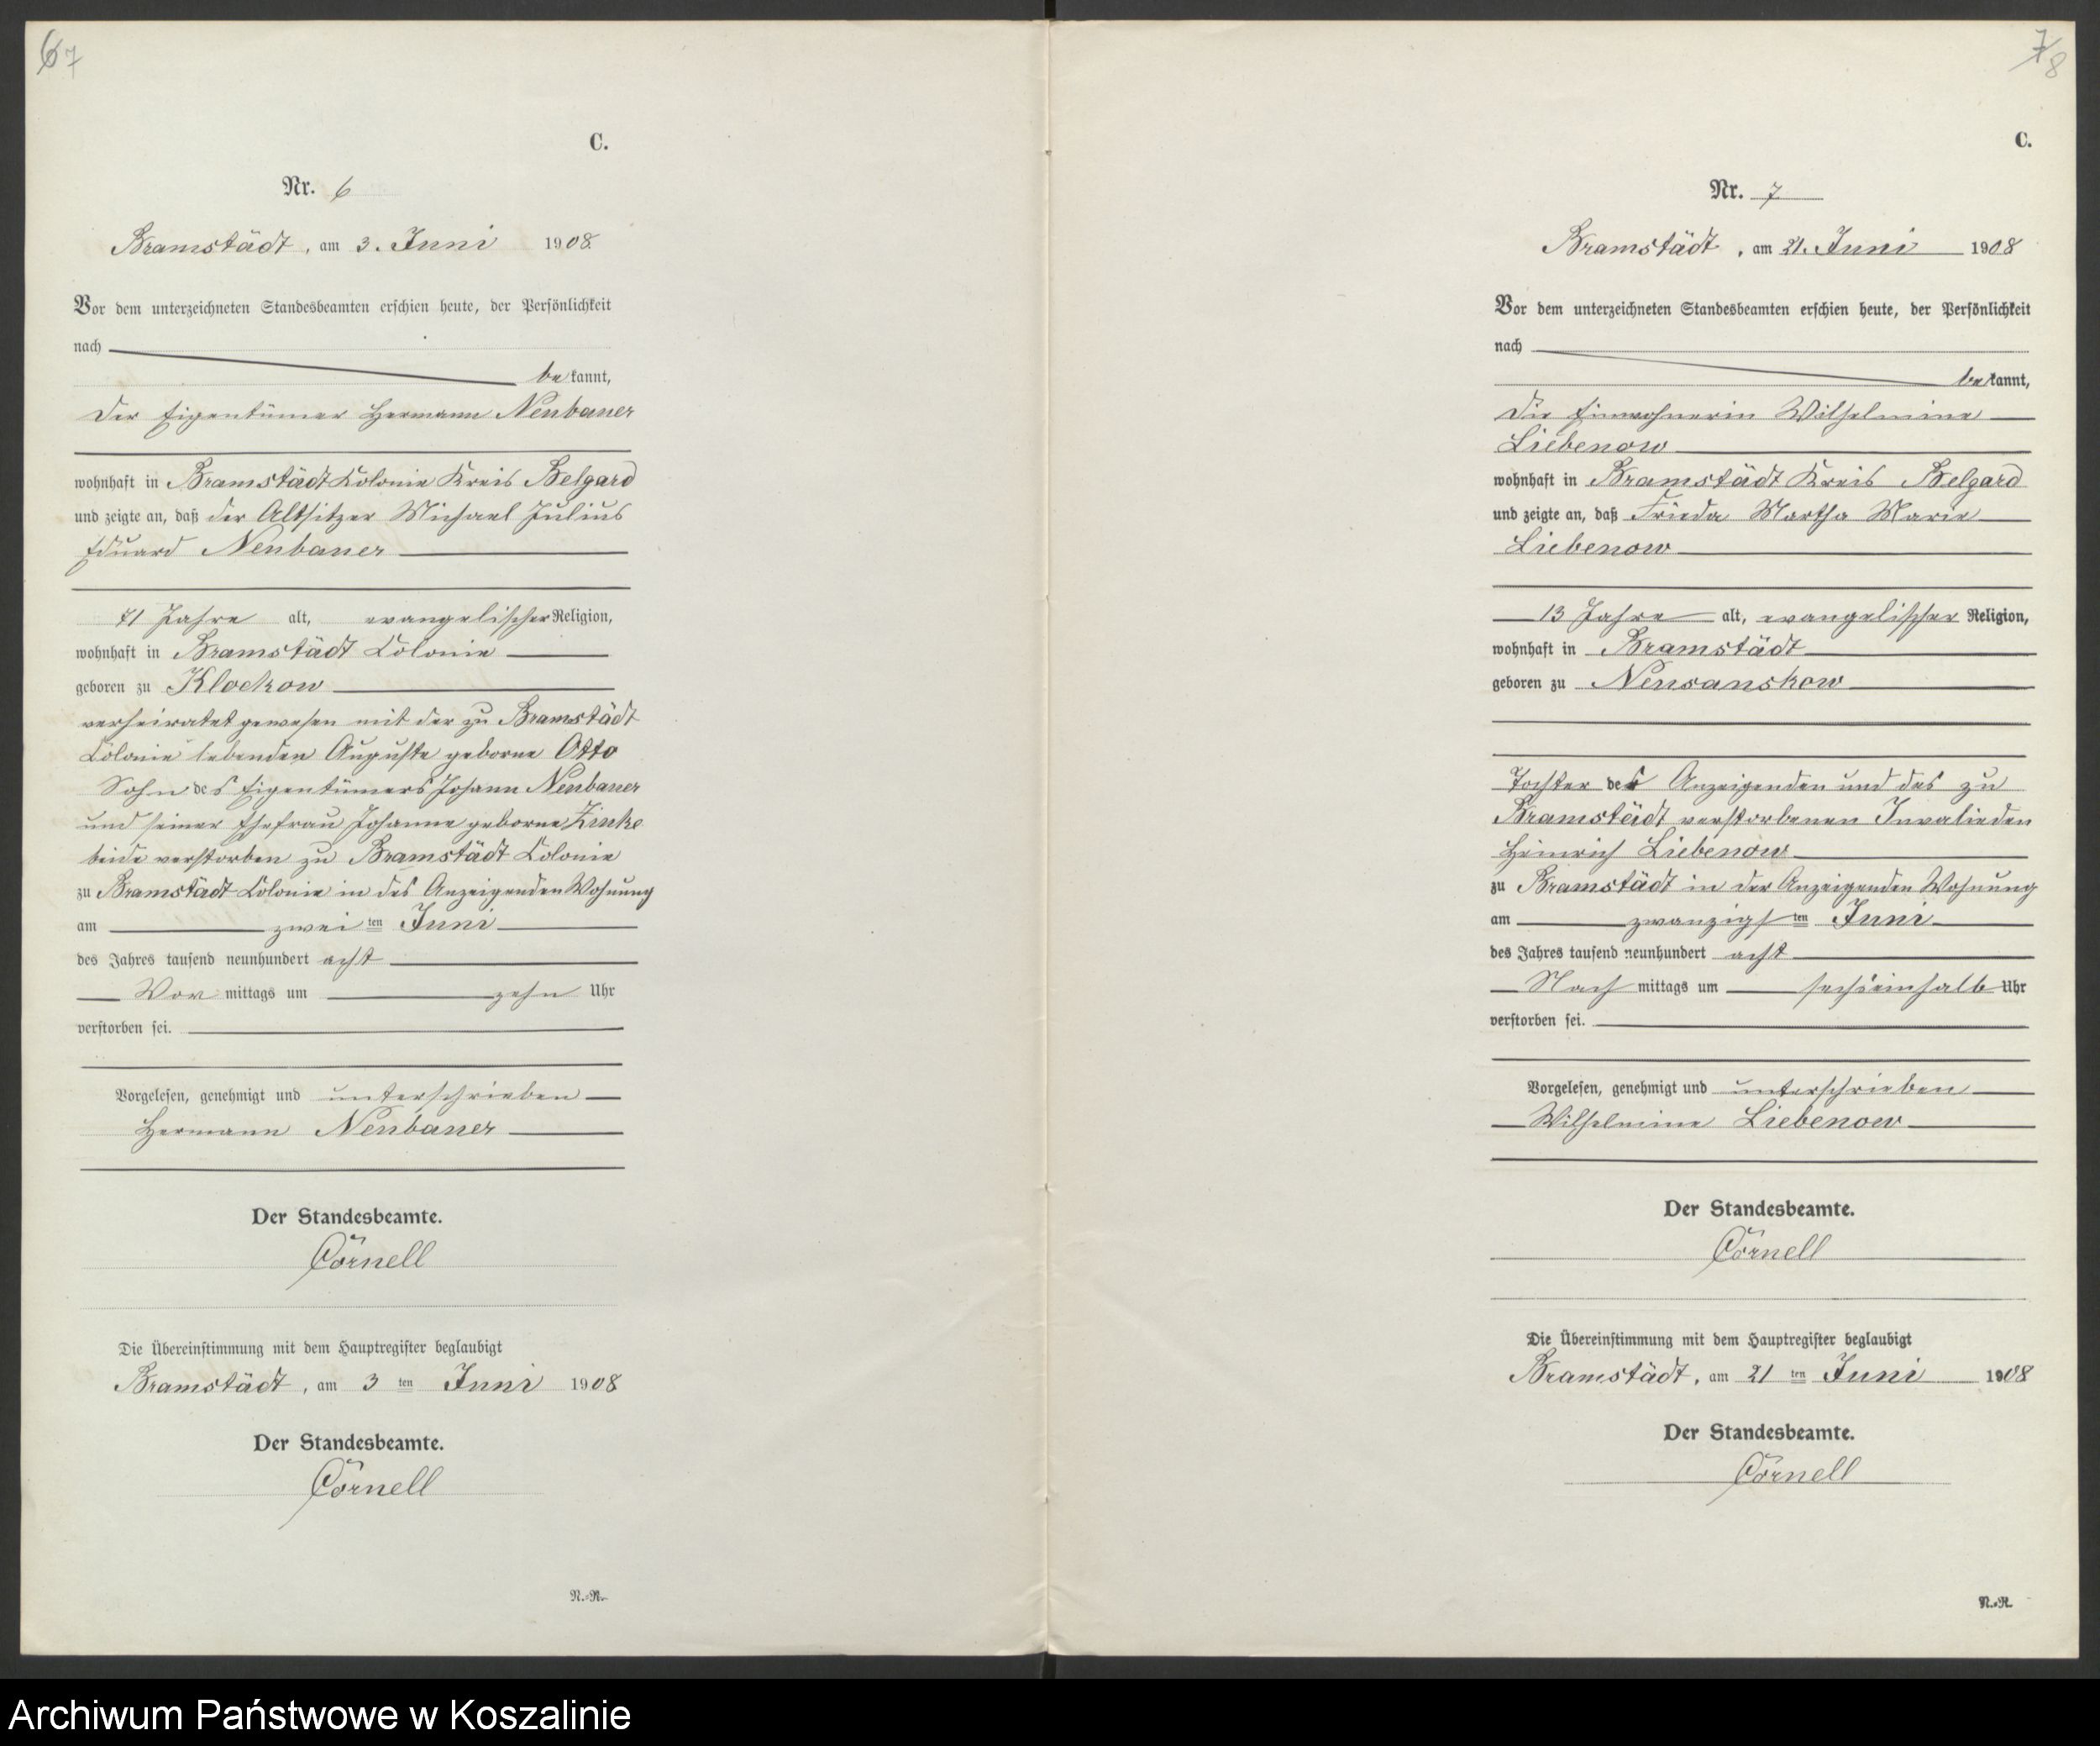 67
C.
Nr. 6
Bramstädt, am 3. Juni 1908.
Vor dem unterzeichneten Standesbeamten erschien heute, der Persönlichkeit
nach
be kannt,
der Eigentümer Hermann Neubauer
wohnhaft in Bramstädt Colonie Kreis Belgard
und zeigte an, daß der Altsitzer Michael Julius
Eduard Neubauer
71 Jahre alt, evangelischer Religion,
wohnhaft in Bramstädt Colonie
geboren zu Klockow
verheiratet gewesen mit der zu Bramstädt
Colonie lebenden Auguste geborne Otto
Sohn des Eigentümers Johann Neubauer
und seiner Ehefrau Johanne geborne Zinke
beide verstorben zu Bramstädt Colonie
zu Bramstädt Colonie in des Anzeigenden Wohnung
am zwei ten Juni
des Jahres tausend neunhundert acht
Vor mittags um zehn Uhr
verstorben sei.
Vorgelesen, genehmigt und unterschrieben
Hermann Neubauer
Der Standesbeamte.
Cörnell
Die Übereinstimmung mit dem Hauptregister beglaubigt
Bramstädt, am 3 ten Juni 1908
Der Standesbeamte.
Cörnell
N.-R.
7/8
C.
Nr. 7
Bramstädt, am 21. Juni 1908
Vor dem unterzeichneten Standesbeamten erschien heute, der Persönlichkeit
nach
be kannt,
die Einwohnerin Wilhelmine
Liebenow
wohnhaft in Bramstädt Kreis Belgard
und zeigte an, daß Frieda Martha Marie
Liebenow
13 Jahre alt, evangelischer Religion,
wohnhaft in Bramstädt
geboren zu Neusanskow
Tochter der Anzeigenden und des zu
Bramstädt verstorbenen Invalieden
Heinrich Liebenow
zu Bramstädt in der Anzeigenden Wohnung
am zwanzigs ten Juni
des Jahres tausend neunhundert acht
Nach mittags um sechseinhalb Uhr
verstorben sei.
Vorgelesen, genehmigt und unterschrieben
Wilhelmine Liebenow
Der Standesbeamte.
Cörnell
Die Übereinstimmung mit dem Hauptregister beglaubigt
Bramstädt, am 21 ten Juni 1908
Der Standesbeamte.
Cörnell
N.-R.
Archiwum Państwowe w Koszalinie